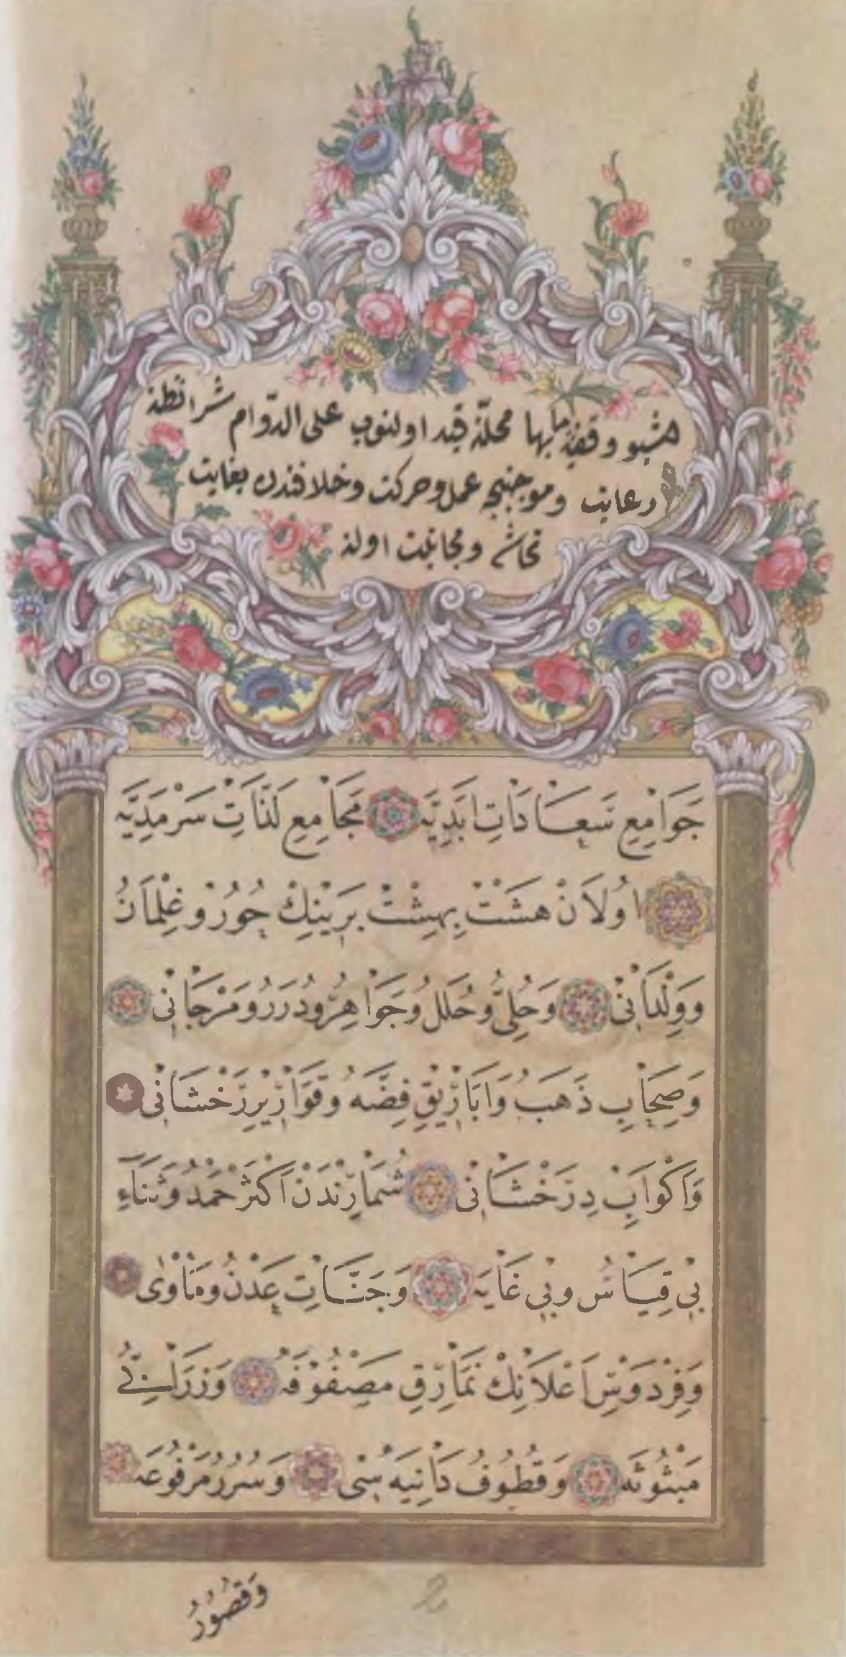 اشبو وقفيه بها محلنه قيد اولنوب على الدّوام شرائطنه
رعايت وموجبنجه عمل وحركت وخلافندن بغايت
تحاشى ومجانبت اولنه
جَوَامِعِ سَعَادَاتِ اَبَدِيَّه مَجَامِعِ لَذَّاتِ سَرْمَدِيَّه
اُولَانْ هَشَتْ بِهِشْتْ بَرَيْنِكْ حُورُ وغِلْمَانُ
وَوِلْدَانْنِى وَحُلِىُّ وحُلَلُ وَجَوَاهِرُ ودُرَرُ ومَرْجَانِى
وَصِحَابِ ذَهَبُ وَاَبَارِيْقِ فِضَّهُ وقَوَارِيْرِ رَخْشَانِى
وَاَكْوَابِ دِرَخْشَانِى شُمَارِنْدَنْ اَكْثَرْ حَمْدُ وَثَنَاءِ
بِى قِيَاسُ وبِى غَايَه وَجَنَّاتِ عَدْنُ ومَأْوٰى
وَفِرْدَوْسِ اَعْلَانِكْ نَمَارِقِ مَصْفُوفَهُ وَزَرَابِىِّ
مَبْثُوثَه وَقُطُوفُ دَانِيَه سْنِى وَسُرُرُ مَرْفُوعَه
وَقُصُورُ
2